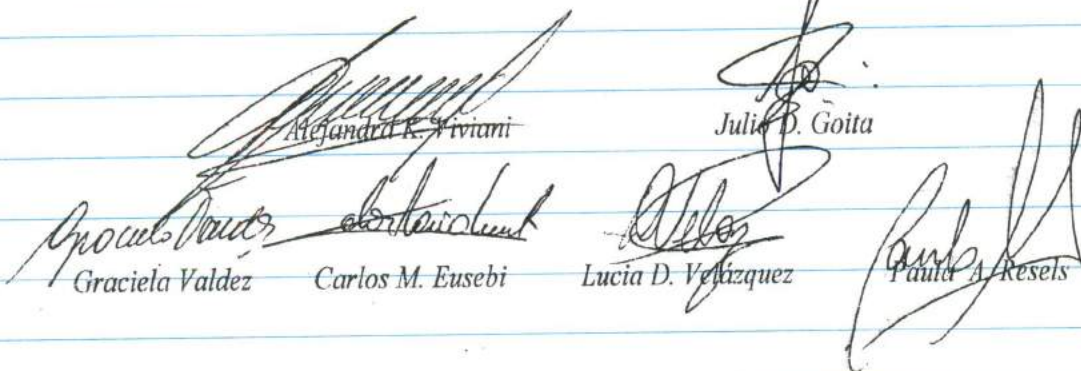 Alejandra K. Viviani Julio D. Goita
Graciela Valdez Carlos M. Eusebi Lucia D. Velázquez Paula A. Resels